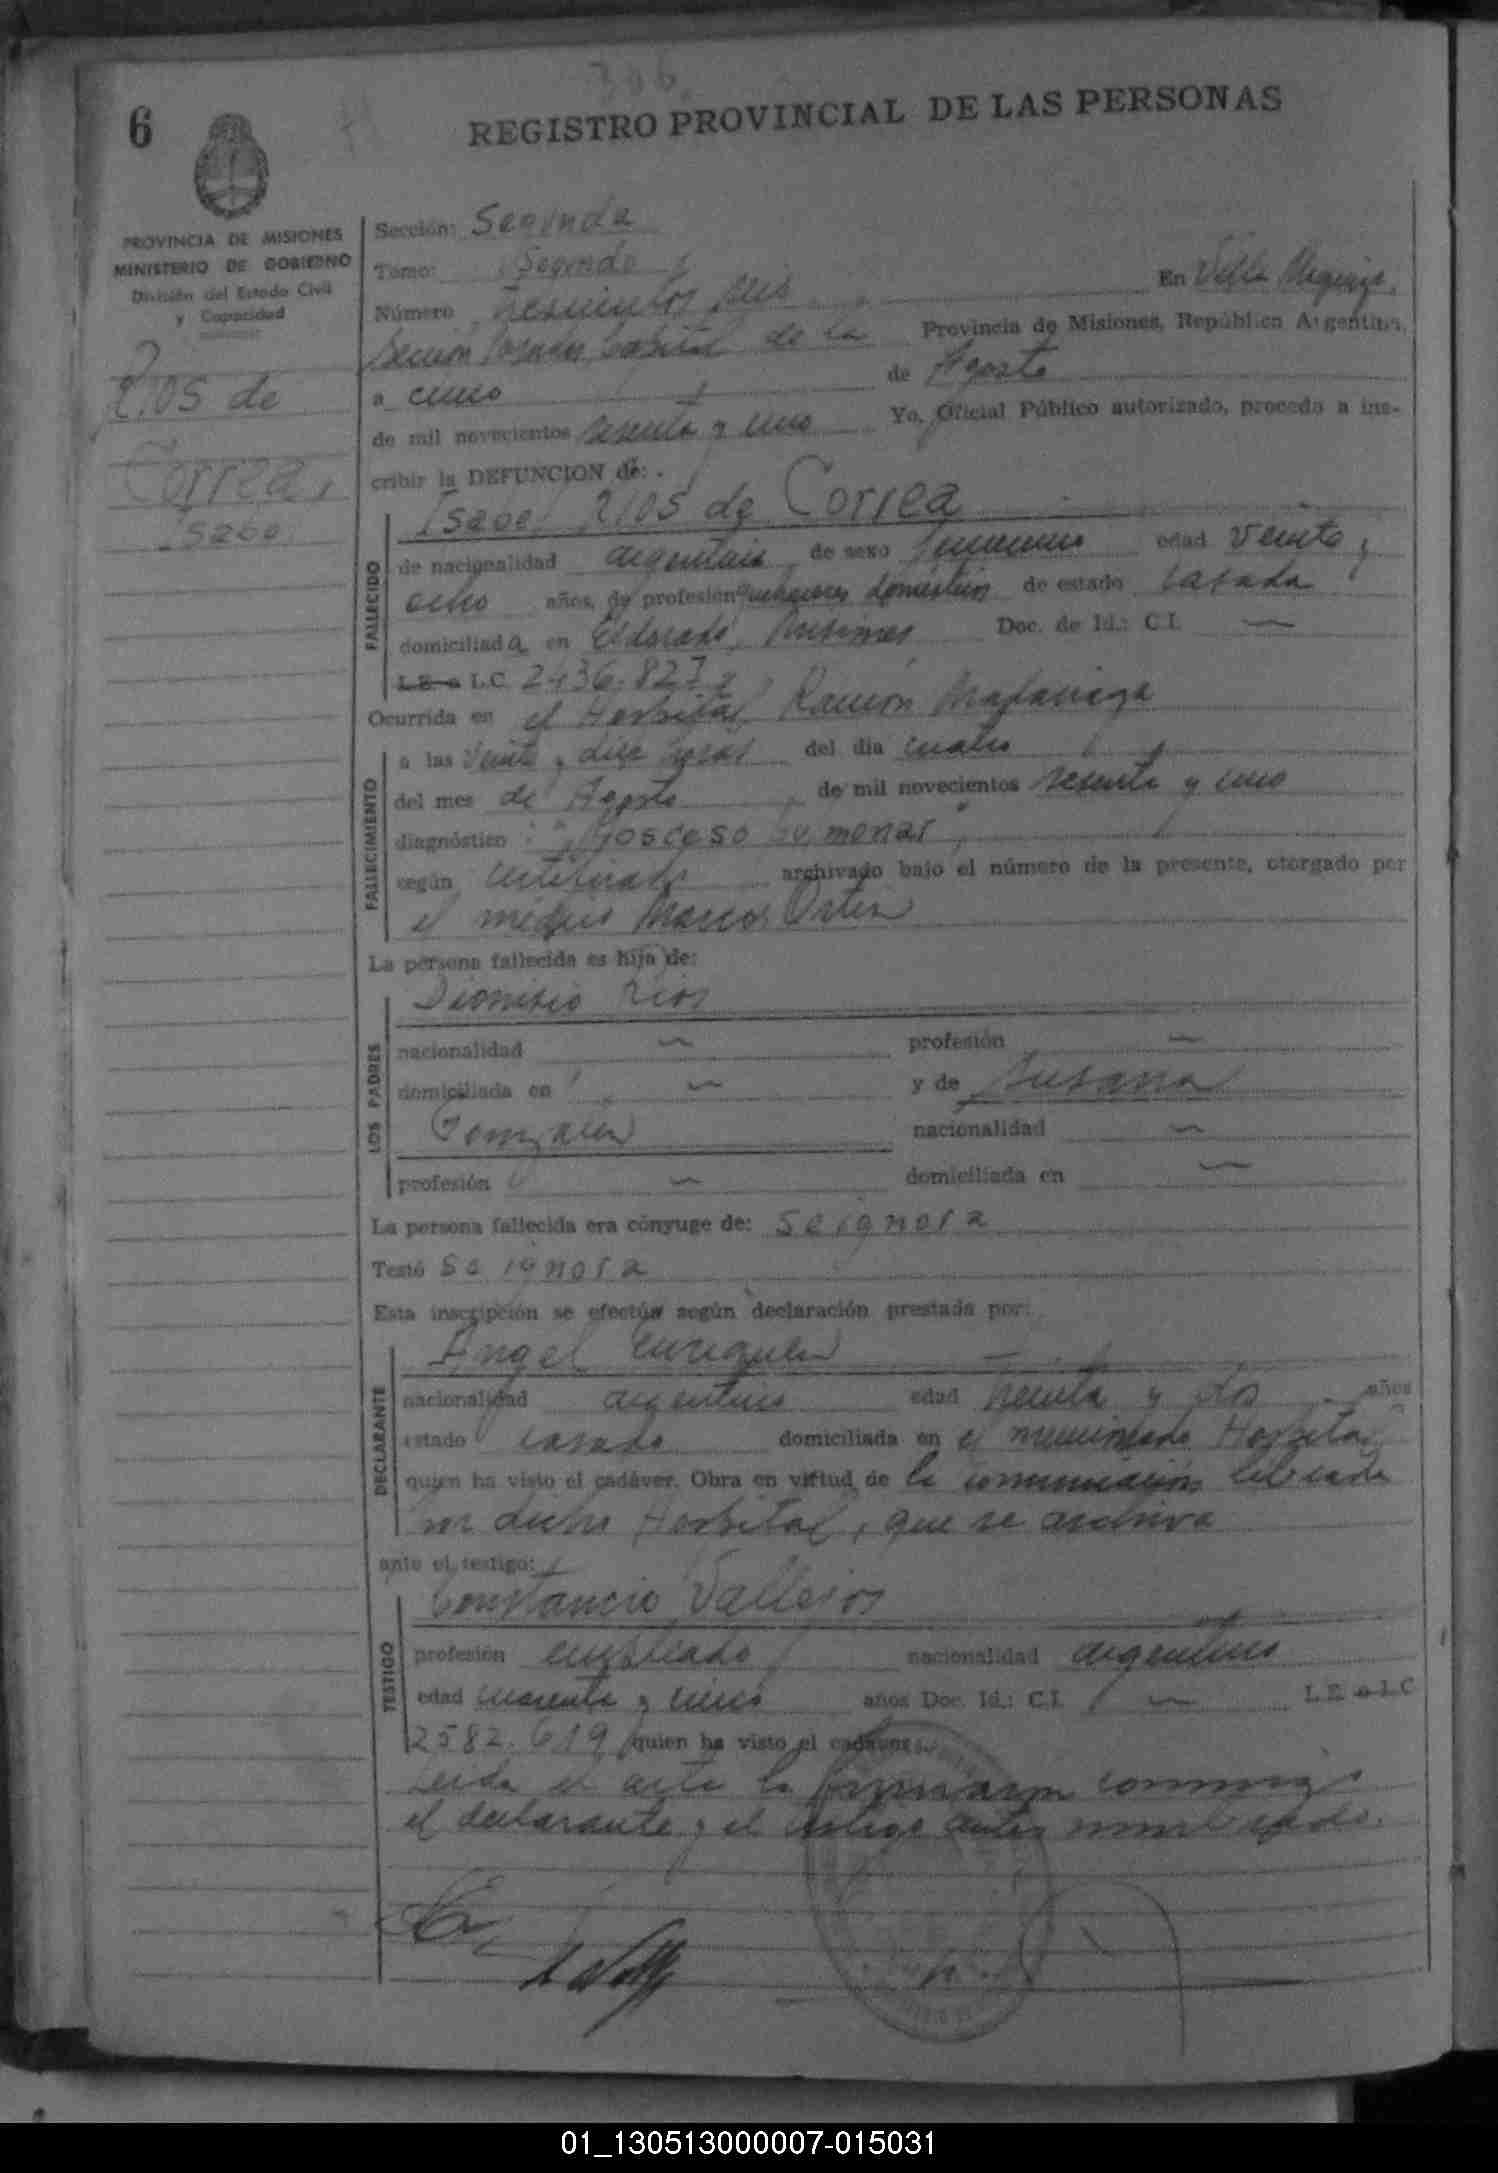 306
6
REGISTRO PROVINCIAL DE LAS PERSONAS
PROVINCIA DE MISIONES
MINISTERIO DE GOBIERNO
División del Estado Civil
y Capacidad
Ríos de
Correa,
Isabel
Sección: Segunda
Tomo: Segundo
En Villa Urquiza,
Número trescientos seis
Sección Posadas Capital de la Provincia de Misiones, República Argentina,
a cinco de Agosto
de mil novecientos sesenta y uno Yo, Oficial Público autorizado, procedo a ins-
cribir la DEFUNCION de:
Isabel Ríos de Correa
FALLECIDO
de nacionalidad argentina de sexo femenino edad veinte y
ocho años, de profesión quehaceres domésticos de estado casada
domiciliada en Eldorado, Misiones Doc. de Id.: C.I. —
L.E. o L.C. 2.436.827
Ocurrida en el Hospital Ramón Madariaga
FALLECIMIENTO
a las veinte y diez horas del día cuatro
del mes de Agosto de mil novecientos sesenta y uno
diagnóstico "Absceso pulmonar"
según certificado archivado bajo el número de la presente, otorgado por
el médico Marcos Ortin
La persona fallecida es hija de:
Dionisio Rios
LOS PADRES
nacionalidad — profesión —
domiciliada en — y de Susana
González nacionalidad —
profesión — domiciliada en —
La persona fallecida era cónyuge de: se ignora
Testó se ignora
Esta inscripción se efectúa según declaración prestada por:
Angel Enriquez
DECLARANTE
nacionalidad argentino edad treinta y dos años
estado casado domiciliada en el mencionado Hospital
quien ha visto el cadáver. Obra en virtud de la comunicación labrada
por dicho Hospital, que se archiva
ante el testigo:
Constancio Vallejos
TESTIGO
profesión empleado nacionalidad argentino
edad cuarenta y cinco años Doc. Id.: C.I. — L.E. o L.C.
2582.619 quien ha visto el cadáver.
Leída el acta la firmaron conmigo
el declarante y el testigo antes mencionado.
01_130513000007-015031